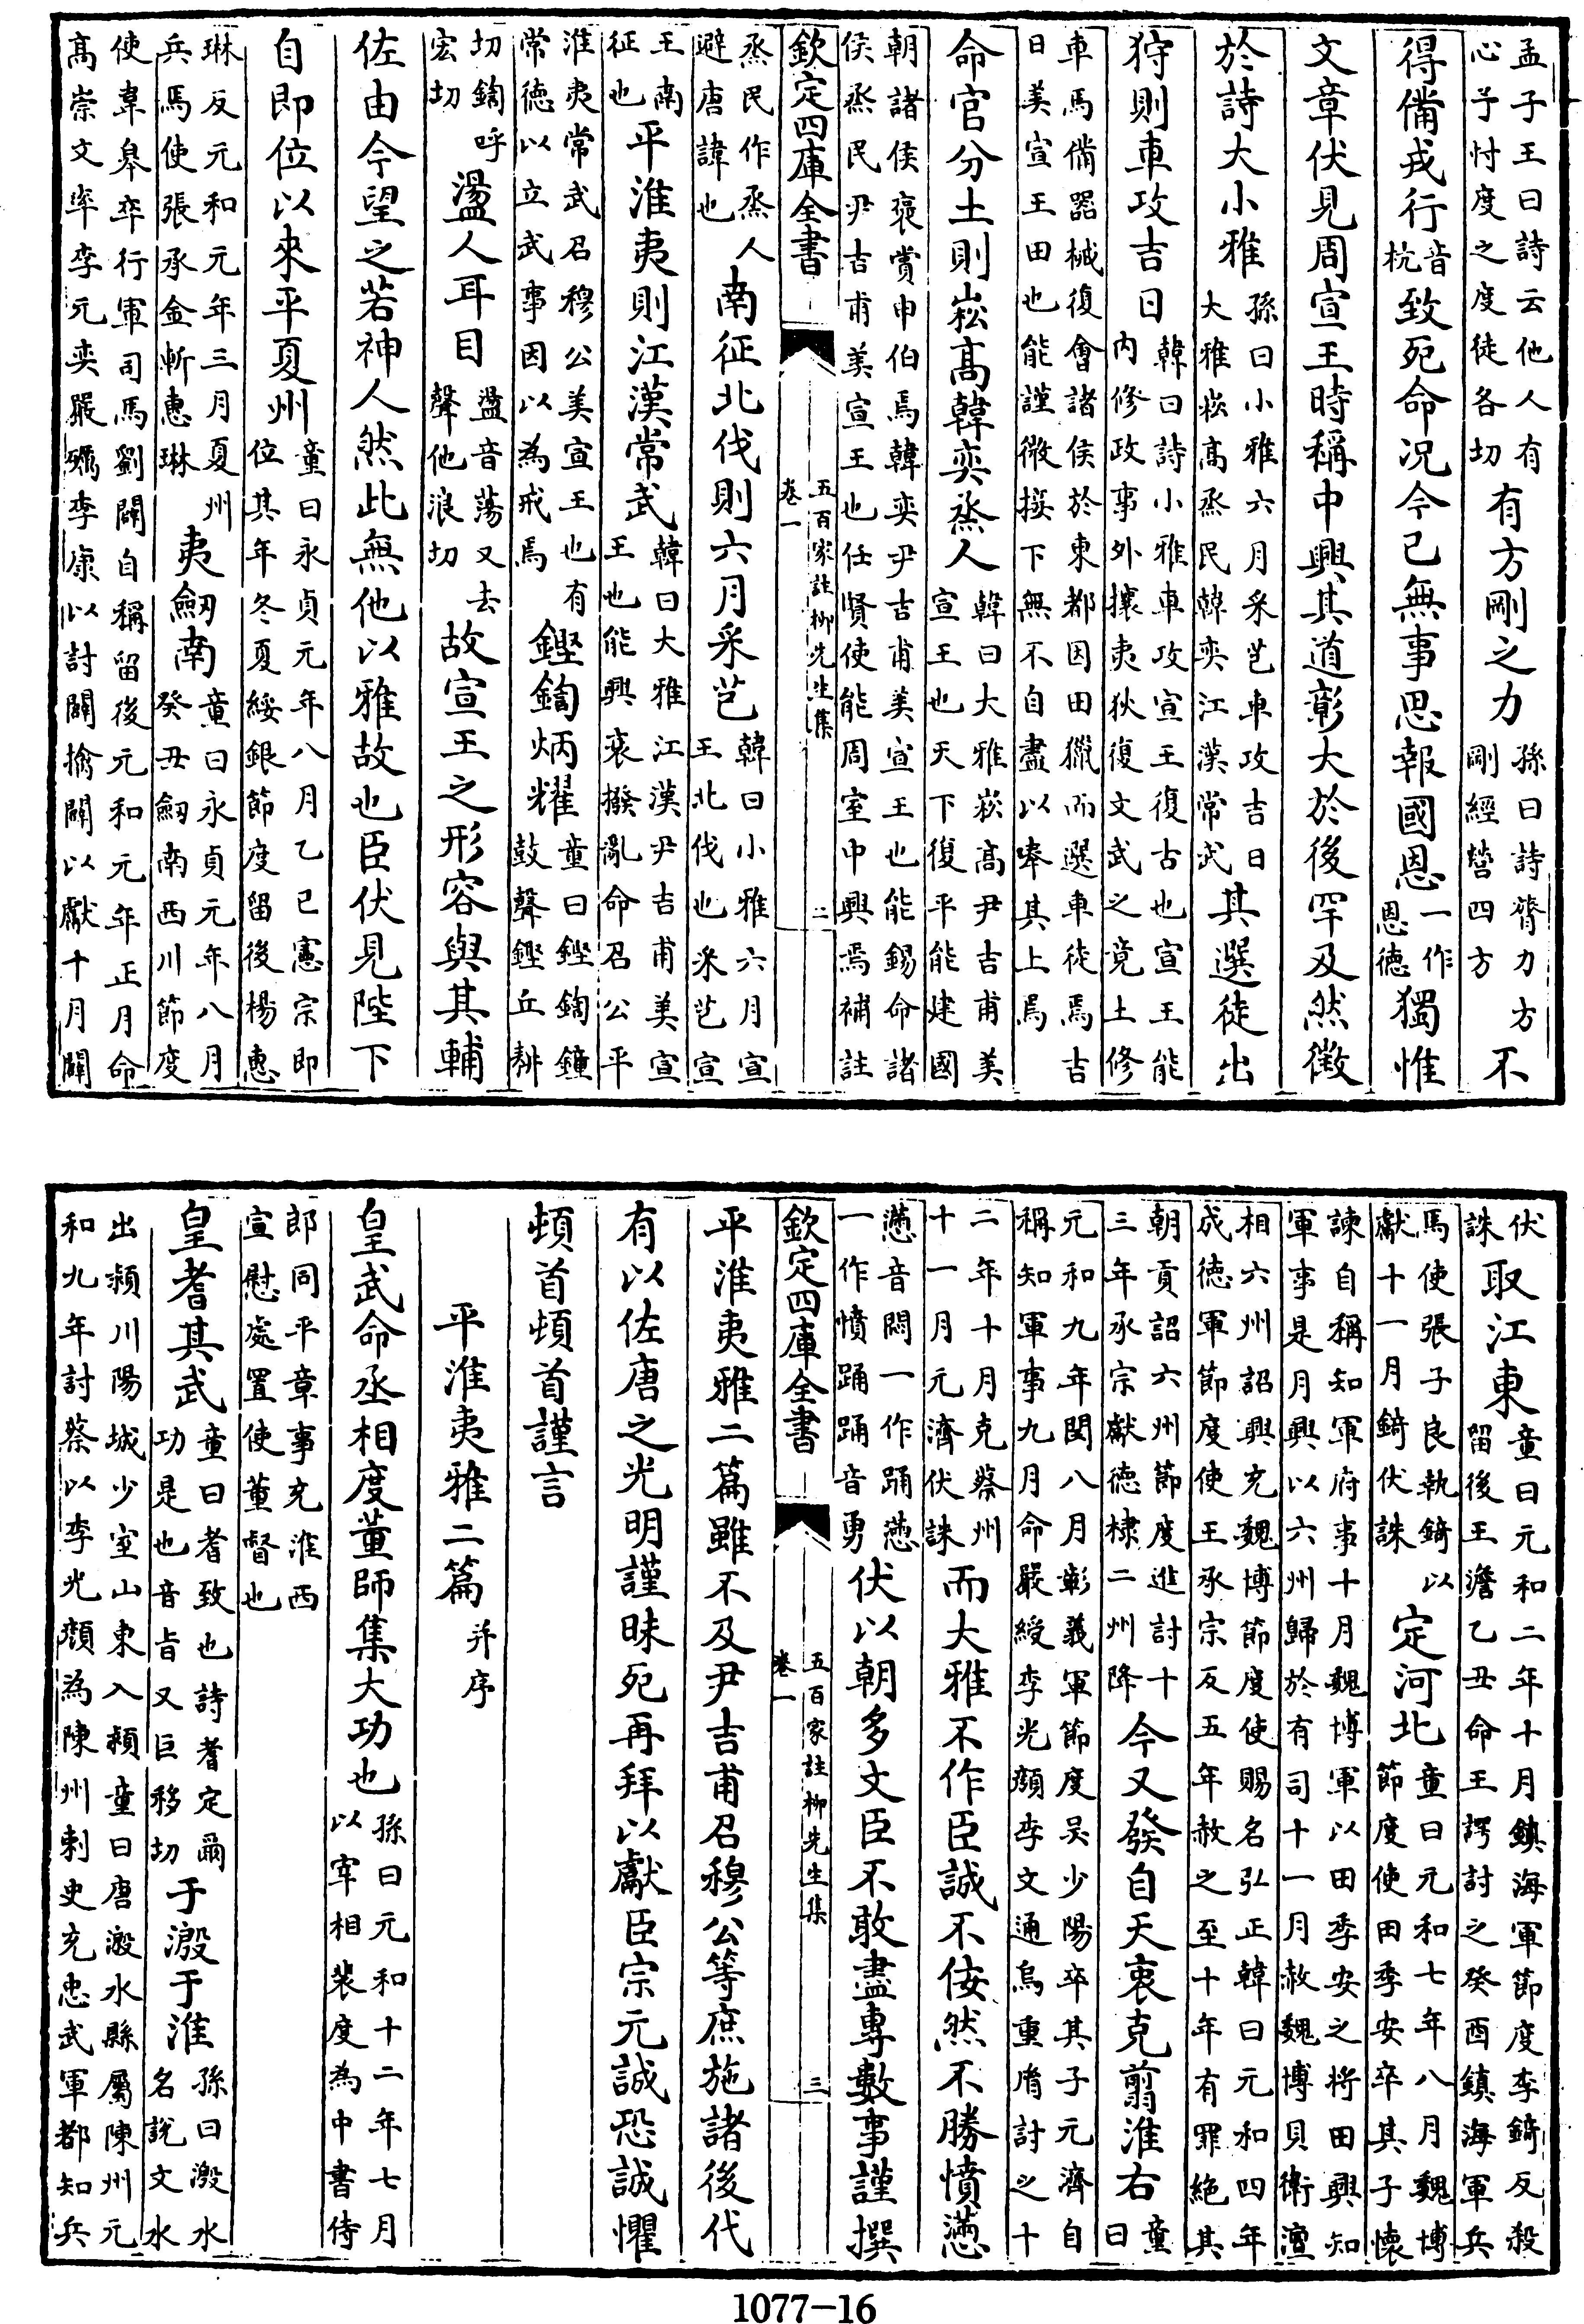 孟子王曰詩云他人有心予忖度之度徒各切有方剛之力孫曰詩膂力方剛經營四方不
得備戎行音杭致死命况今已無事思報國恩一作恩德獨惟
文章伏見周宣王時稱中興其道彰大於後罕及然徵
於詩大小雅孫曰小雅六月采芑車攻吉日大雅崧高烝民韓奕江漢常武其選徒出
狩則車攻吉日韓曰詩小雅車攻宣王復古也宣王能内修政事外攘夷狄復文武之竟土修
車馬備器械復會諸侯於東都因田獵而選車徒焉吉日美宣王田也能謹微接下無不自盡以奉其上焉
命官分土則崧高韓奕烝人韓曰大雅崧高尹吉甫美宣王也天下復平能建國
朝諸侯褒賞申伯焉韓奕尹吉甫美宣王也能錫命諸侯烝民尹吉甫美宣王也任賢使能周室中興焉補註
欽定四庫全書 五百家註柳先生集 卷一 二
烝民作烝人避唐諱也南征北伐則六月采芑韓曰小雅六月宣王北伐也采芑宣
王南征也平淮夷則江漢常武韓曰大雅江漢尹吉甫美宣王也能興衰撥亂命召公平
淮夷常武召穆公美宣王也有常德以立武事因以為戒焉鏗鍧炳耀童曰鏗鍧鐘鼓聲鏗丘耕
切鍧呼宏切盪人耳目盪音蕩又去聲他浪切故宣王之形容與其輔
佐由今望之若神人然此無他以雅故也臣伏見陛下
自即位以來平夏州童曰永貞元年八月乙巳憲宗即位其年冬夏綏銀節度留後楊惠
琳反元和元年三月夏州兵馬使張承金斬惠琳夷劒南童曰永貞元年八月癸丑劒南西川節度
使韋皋卒行軍司馬劉闢自稱留後元和元年正月命高崇文率李元奕嚴礪李康以討闢擒闢以獻十月闢
伏誅取江東童曰元和二年十月鎮海軍節度李錡反殺留後王澹乙丑命王諤討之癸酉鎮海軍兵
馬使張子良執錡以獻十一月錡伏誅定河北童曰元和七年八月魏博節度使田季安卒其子懷
諫自稱知軍府事十月魏博軍以田季安之將田興知軍事是月興以六州歸於有司十一月赦魏博貝衛澶
相六州詔興充魏博節度使賜名弘正韓曰元和四年成德軍節度使王承宗反五年赦之至十年有罪絕其
朝貢詔六州節度進討十三年承宗獻德棣二州降今又發自天衷克翦淮右童曰
元和九年閏八月彰義軍節度吳少陽卒其子元濟自稱知軍事九月命嚴綬李光顔李文通烏重胤討之十
二年十月克蔡州十一月元濟伏誅而大雅不作臣誠不佞然不勝憤懣
懣音悶一作踊懣一作憤踊踊音勇伏以朝多文臣不敢盡專數事謹撰
欽定四庫全書 五百家註柳先生集 卷一 三
平淮夷雅二篇雖不及尹吉甫召穆公等庶施諸後代
有以佐唐之光明謹昧死再拜以獻臣宗元誠恐誠懼
頓首頓首謹言
平淮夷雅二篇并序
皇武命丞相度董師集大功也孫曰元和十二年七月以宰相裴度為中書侍
郎同平章事充淮西宣慰處置使董督也
皇耆其武童曰耆致也詩耆定爾功是也音旨又巨移切于溵于淮孫曰溵水名說文水
出潁川陽城少室山東入潁童曰唐溵水縣屬陳州元和九年討蔡以李光顔為陳州刺史充忠武軍都知兵
1077-16